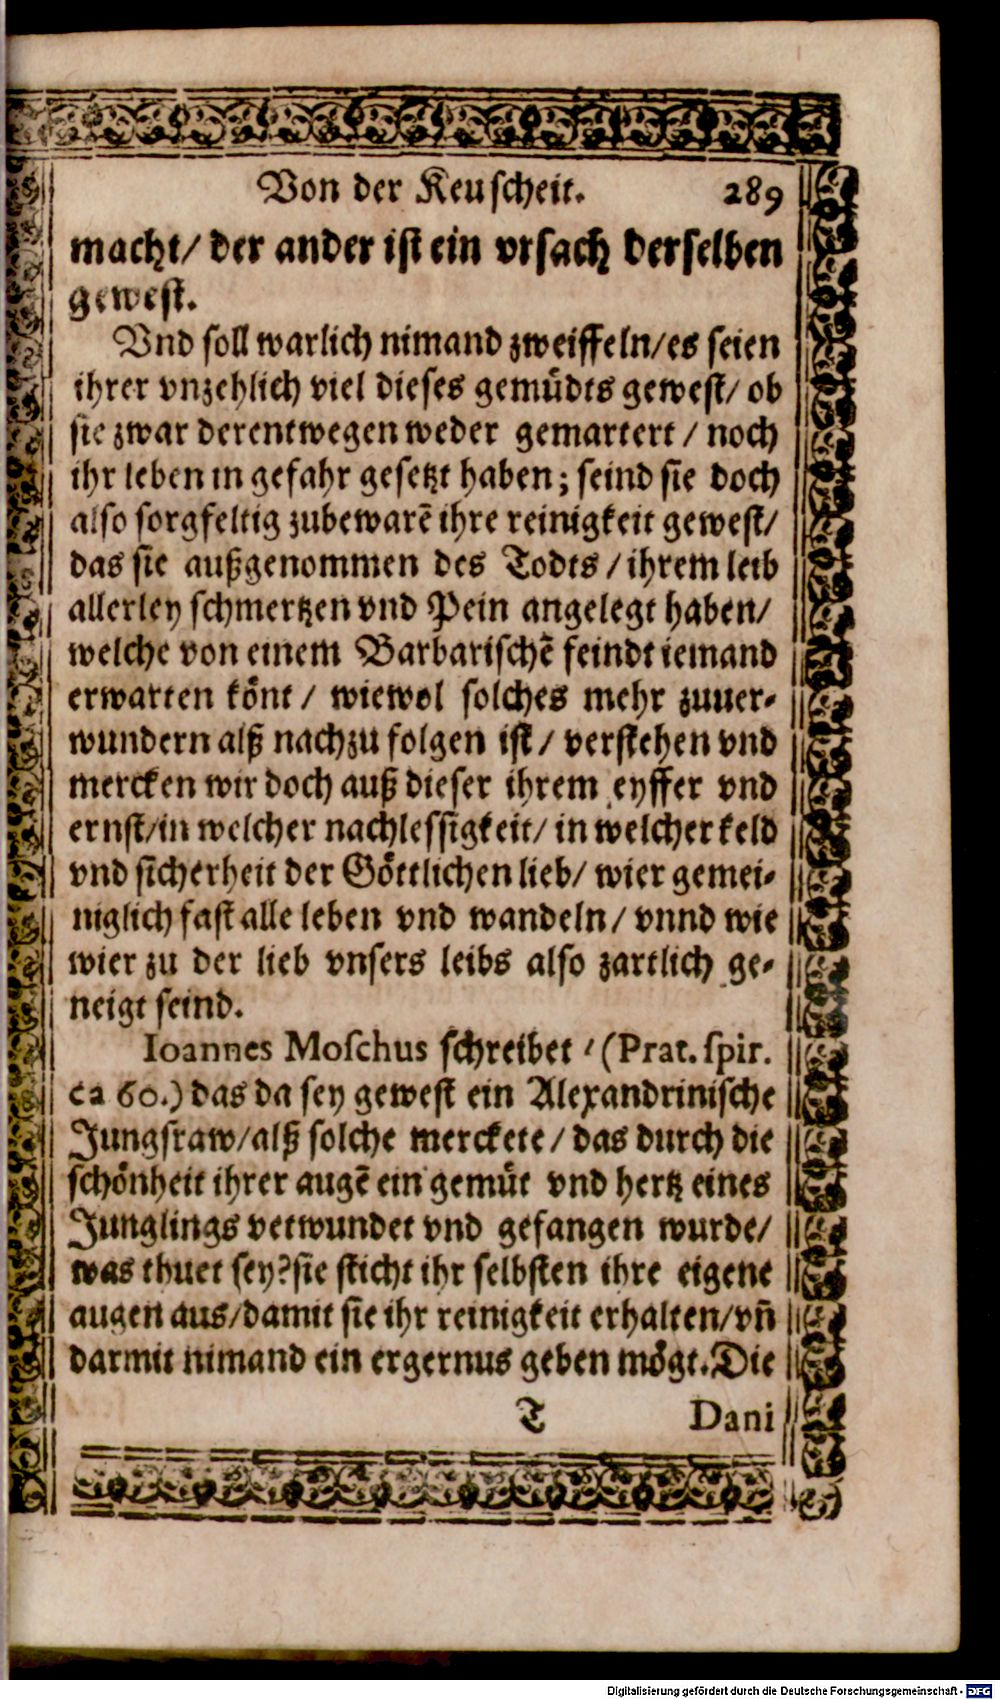 Von der Keuscheit. 289
macht/ der ander ist ein vrsach derselben
gewest.
Vnd soll warlich nimand zweiffeln/es seien
ihrer vnzehlich viel dieses gemüdts gewest/ ob
sie zwar derentwegen weder gemartert / noch
ihr leben in gefahr gesetzt haben; seind sie doch
also sorgfeltig zubewarē ihre reinigkeit gewest/
das sie außgenommen des Todts / ihrem leib
allerley schmertzen vnd Pein angelegt haben/
welche von einem Barbarischē feindt iemand
erwarten könt / wiewol solches mehr zuuer-
wundern alß nachzu folgen ist / verstehen vnd
mercken wir doch auß dieser ihrem eyffer vnd
ernst/in welcher nachlessigkeit/ in welcher keld
vnd sicherheit der Göttlichen lieb/ wier gemei-
niglich fast alle leben vnd wandeln/ vnnd wie
wier zu der lieb vnsers leibs also zartlich ge-
neigt seind.
Ioannes Moschus schreibet / (Prat. spir.
ca 60.) das da sey gewest ein Alexandrinische
Jungsraw/alß solche merckete / das durch die
schönheit ihrer augē ein gemüt vnd hertz eines
Junglings verwundet vnd gefangen wurde/
was thuet sey?sie sticht ihr selbsten ihre eigene
augen aus/damit sie ihr reinigkeit erhalten/vn̄
darmit nimand ein ergernus geben mögt.Die
T Dani
Digitalisierung gefördert durch die Deutsche Forschungsgemeinschaft - DFG